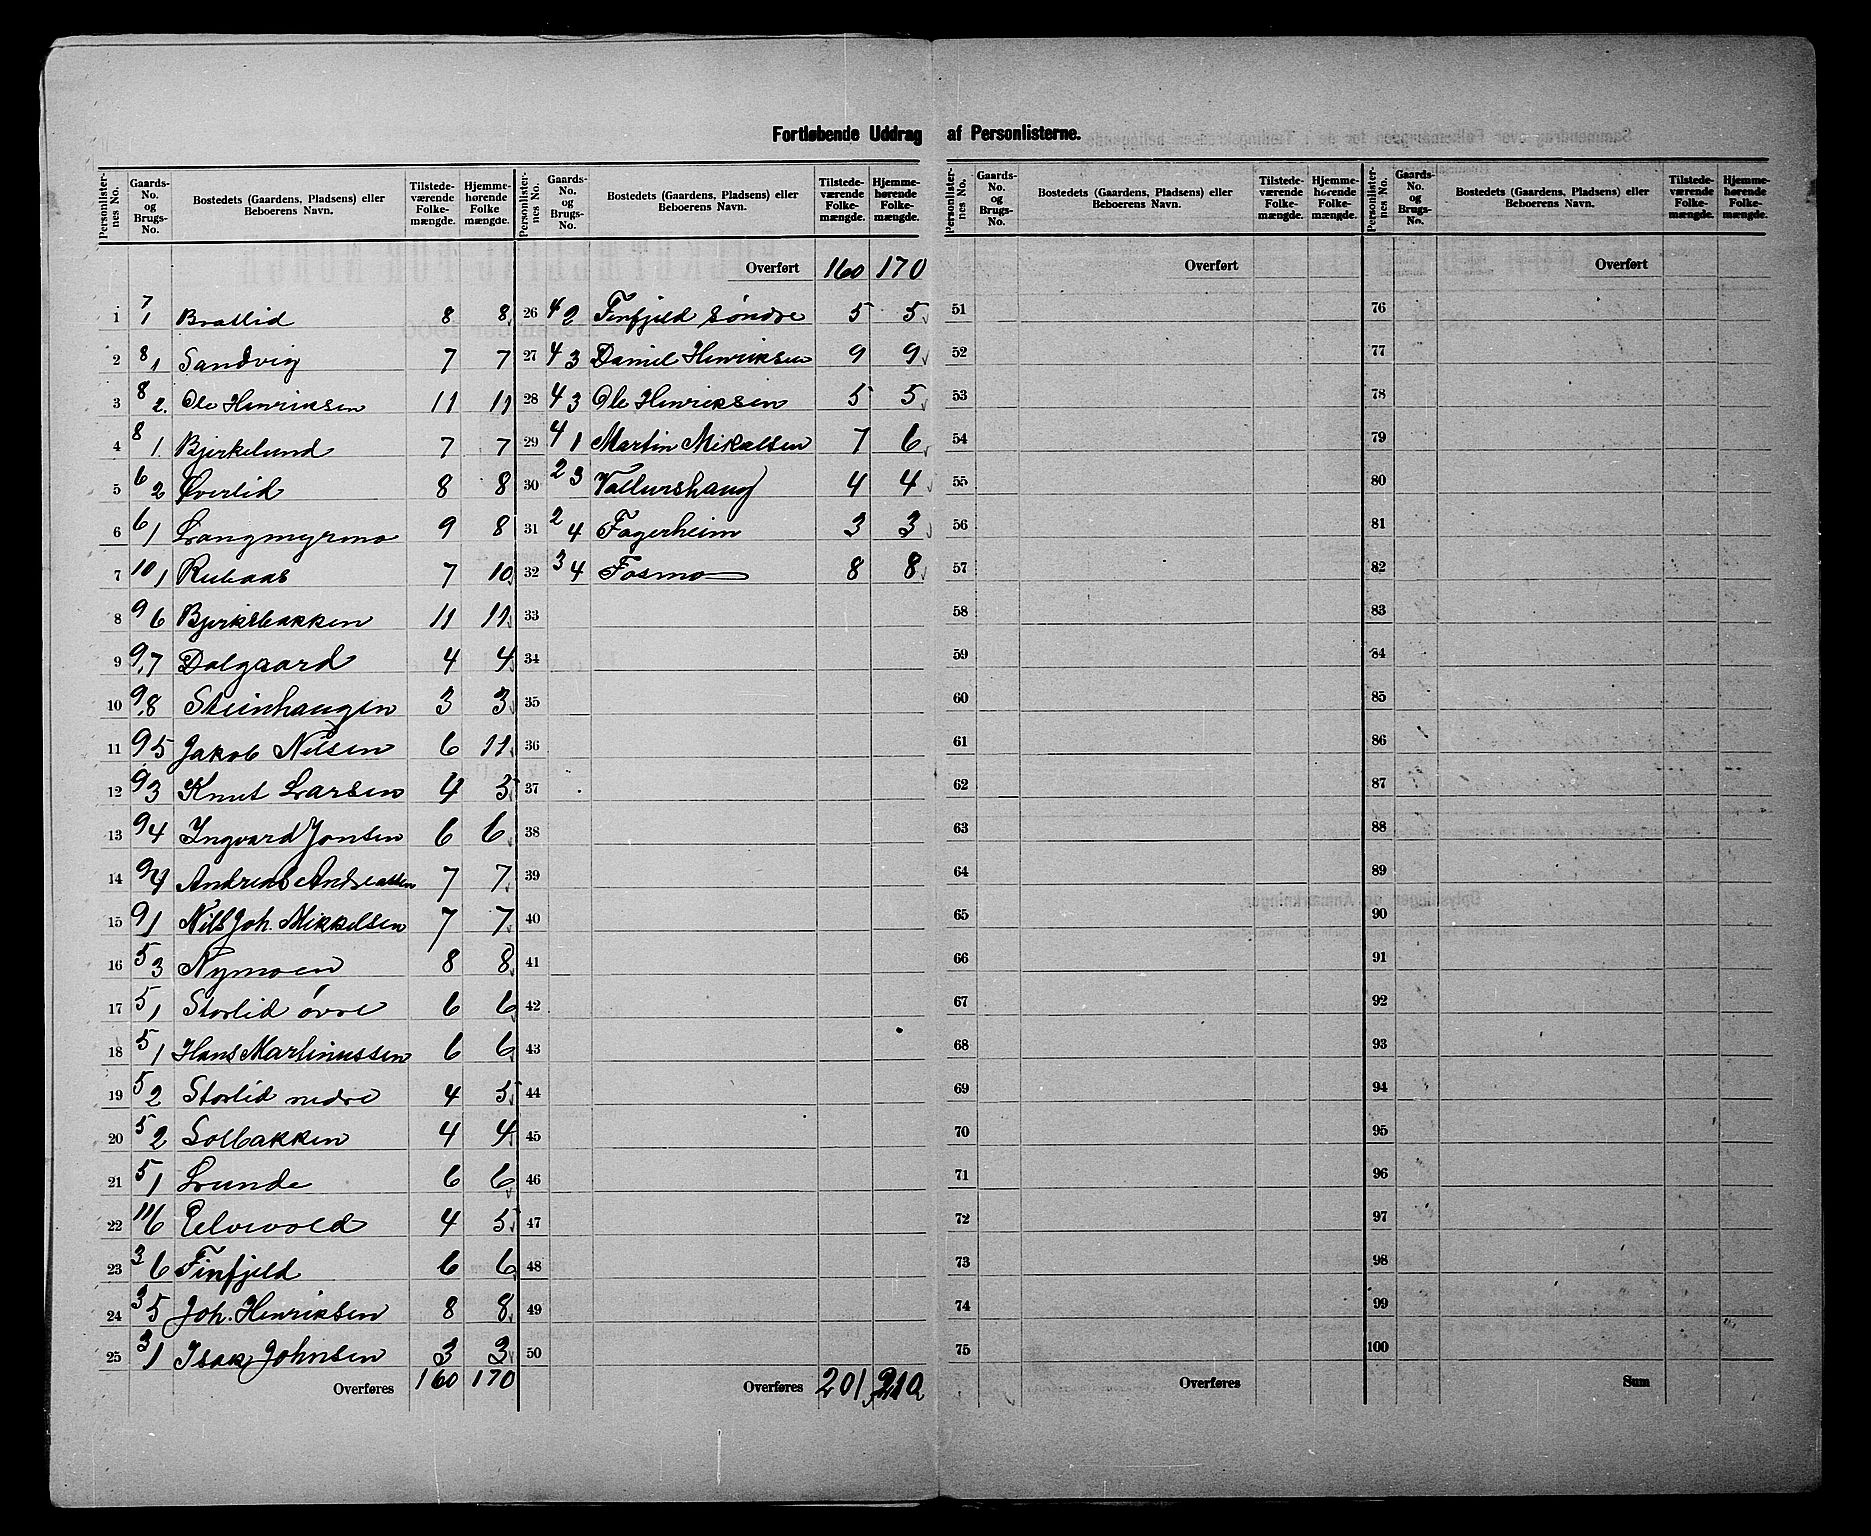 Fortløbende Uddrag af Personlisterne.
Personlister-nes No. Gaards-No. og Brugs-No. Bostedets (Gaardens, Pladsens) eller Beboerens Navn. Tilstede-værende Folke-mængde. Hjemme-hørende Folke mængde.
1 7/1 Bratlid 8 8
2 8/1 Sandvig 7 7
3 8/2. Ole Henriksen 11 11
4 8/1 Bjerkelund 7 7
5 6/2 Øverlid 8 8
6 6/1 Langmyrmo 9 8
7 10/1 Rubaas 7 10
8 9/6 Bjerkebakken 11 11
9 9/7 Dalgaard 4 4
10 9/8 Steinhaugen 3 3
11 9/5 Jakob Nilsen 6 11
12 9/3 Knut Larsen 4 5
13 9/4 Ingvard Jonsen 6 6
14 9/4 Andreas Andreassen 7 7
15 9/1 Nils Joh. Mikkelsen 7 7
16 5/3 Nymoen 8 8
17 5/1 Storlid øvre 6 6
18 5/1 Hans Martinussen 6 6
19 5/2 Storlid nedre 4 5
20 5/2 Solbakken 4 4
21 5/1 Lunde 6 6
22 11/6 Elvevold 4 5
23 3/6 Finfjeld 6 6
24 3/5 Joh. Henriksen 8 8
25 3/1 Isak Johnsen 3 3
Overføres 160 170
Personlister-nes No. Gaards-No. og Brugs-No. Bostedets (Gaardens, Pladsens) eller Beboerens Navn. Tilstede-værende Folke-mængde. Hjemme-hørende Folke-mængde.
Overført 160 170
26 4/2 Finfjeld søndre 5 5
27 4/3 Daniel Henriksen 9 9
28 4/3 Ole Henriksen 5 5
29 4/1 Martin Mikalsen 7 6
30 2/3 4 4
31 2/4 Fagerheim 3 3
32 3/4 Fosmo 8 8
33
34
35
36
37
38
39
40
41
42
43
44
45
46
47
48
49
50
Overføres 201 210
Personlister-nes No. Gaards-No. og Brugs-No. Bostedets (Gaardens, Pladsens) eller Beboerens Navn. Tilstede-værende Folke-mængde. Hjemme-hørende Folke-mængde.
Overført
51
52
53
54
55
56
57
58
59
60
61
62
63
64
65
66
67
68
69
70
71
72
73
74
75
Overføres
Personlister-nes No. Gaards-No. og Brugs-No. Bostedets (Gaardens, Pladsens) eller Beboerens Navn. Tilstede-værende Folke-mængde. Hjemme-hørende Folke-mængde.
Overført
76
77
78
79
80
81
82
83
84
85
86
87
88
89
90
91
92
93
94
95
96
97
98
99
100
Sum